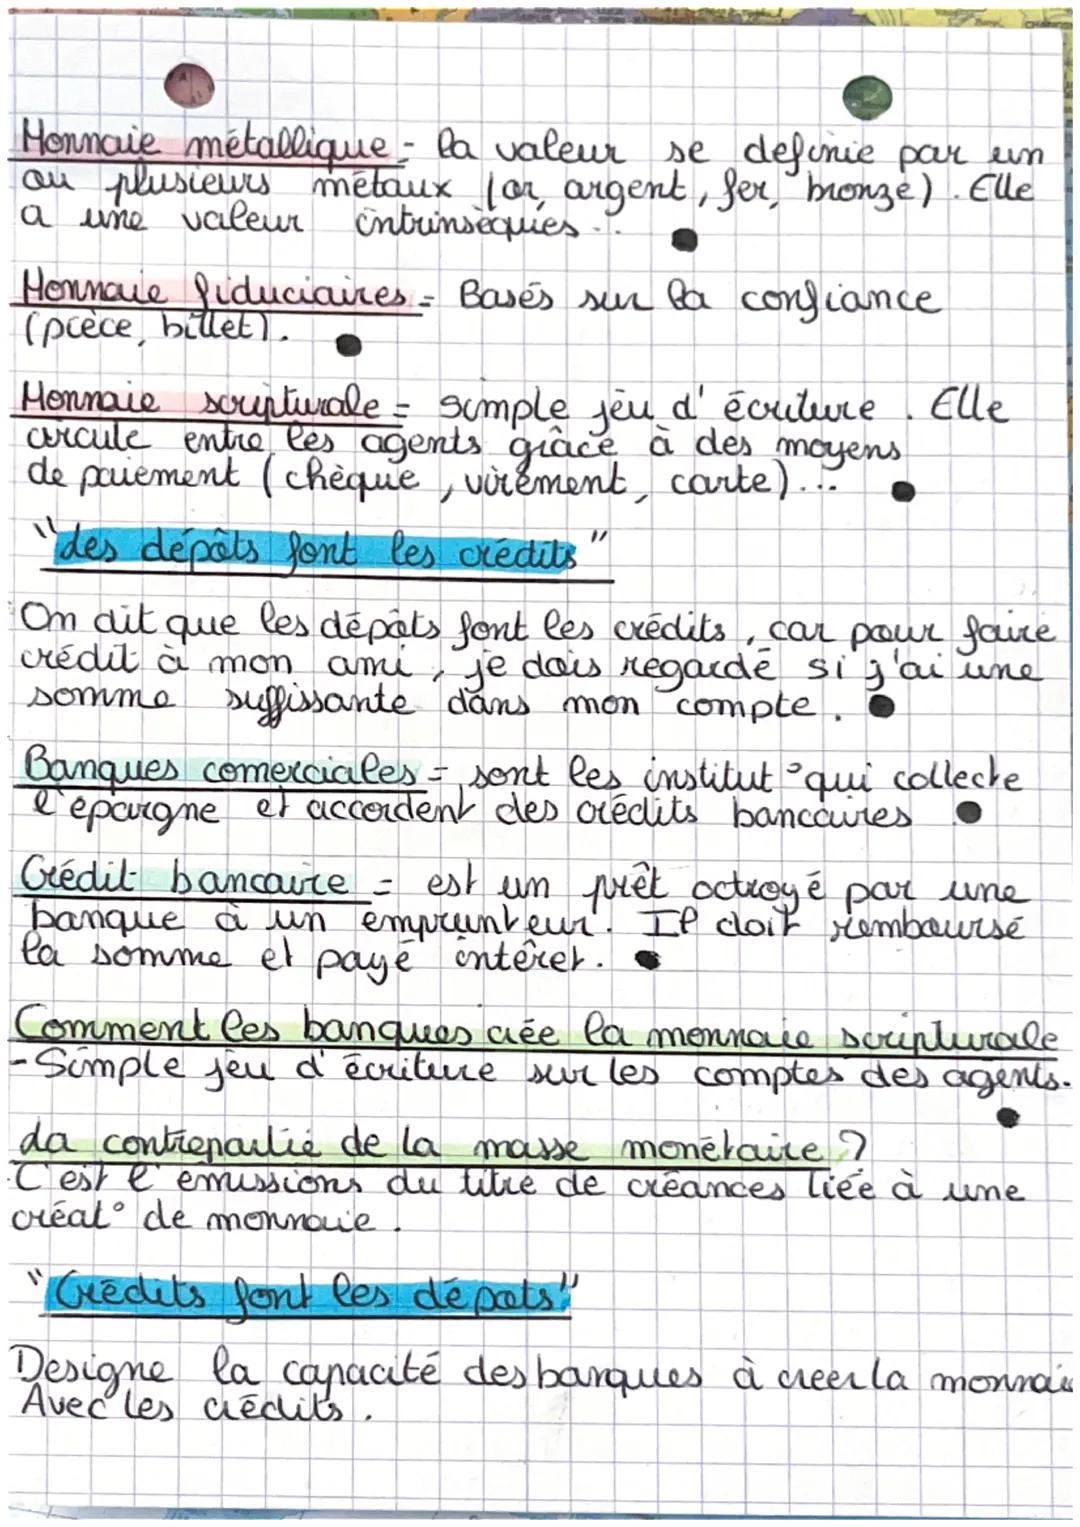 Monnaie métallique = la valeur se definie par un
ou plusieurs métaux (or, argent, fer, bronze). Elle
a une valeur intrinsèques...
Monnaie fiduciaires = Basés sur la confiance
(pièce, billet).
Monnaie scripturale = simple jeu d'écriture. Elle
circule entre les agents grâce à des moyens
de paiement (chèque, virement, carte)...
"les dépôts font les crédits"
On dit que les dépôts font les crédits, car pour faire
crédit à mon ami, je dois regardé si j'ai une
somme suffissante dans mon compte.
Banques comerciales = sont les institut° qui collecte
l'épargne et accordent des crédits bancaires
Crédit bancaire = est un prêt octroyé par une
banque à un emprunteur. Il doit remboursé
la somme et payé intérêt.
Comment les banques crée la monnaie scripturale
- Simple jeu d'écriture sur les comptes des agents.
La contrepartie de la masse monétaire ?
C'est l'émissions du titre de créances liée à une
créat° de monnaie.
"Crédits font les dépots"
Designe la capacité des banques à creer la monnaie
Avec les crédits.